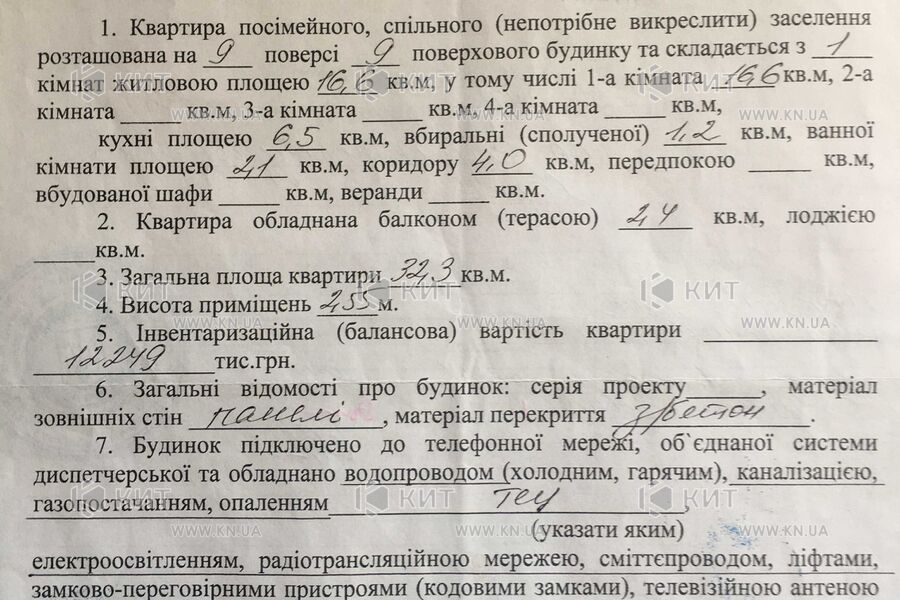 1. Квартира посімейного, спільного (непотрібне викреслити) заселення
розташована на 9 поверсі 9 поверхового будинку та складається з 1
кімнат житловою площею 16,6 кв.м, у тому числі 1-а кімната 16,6 кв.м, 2-а
кімната кв.м, 3-а кімната кв.м, 4-а кімната кв.м,
кухні площею 6,5 кв.м, вбиральні (сполученої) 1,2 кв.м, ванної
кімнати площею 2,1 кв.м, коридору 4,0 кв.м, передпокою кв.м,
вбудованої шафи кв.м, веранди кв.м.
2. Квартира обладнана балконом (терасою) 2,4 кв.м, лоджією
кв.м.
3. Загальна площа квартири 32,3 кв.м.
4. Висота приміщень 2,55 м.
5. Інвентаризаційна (балансова) вартість квартири
12249 тис.грн.
6. Загальні відомості про будинок: серія проекту , матеріал
зовнішніх стін панелі , матеріал перекриття з/бетон .
7. Будинок підключено до телефонної мережі, об`єднаної системи
диспетчерської та обладнано водопроводом (холодним, гарячим), каналізацією,
газопостачанням, опаленням тец ,
(указати яким)
електроосвітленням, радіотрансляційною мережею, сміттєпроводом, ліфтами,
замково-переговірними пристроями (кодовими замками), телевізійною антеною
КИТ
WWW.KN.UA
КИТ
WWW.KN.UA
КИТ
WWW.KN.UA
КИТ
WWW.KN.UA
КИТ
WWW.KN.UA
КИТ
WWW.KN.UA
КИТ
WWW.KN.UA
КИТ
WWW.KN.UA
КИТ
WWW.KN.UA